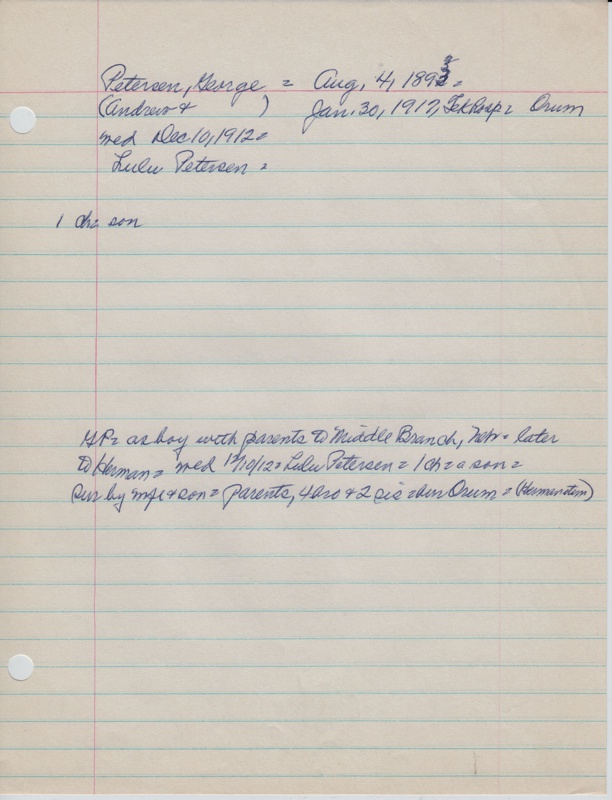 Petersen, George = Aug. 4, 1893 =
(Andrew & ) Jan. 30, 1917, = Orum
wed Dec 10, 1912 =
Lulu Petersen =
1 ch = son
GP = as boy with parents to Middle Branch, Nebr = later
to Herman = wed 12/10/12 = Lulu Petersen = 1 ch = a son =
sur by wife & son = parents, 4 bro & 2 sis = bur Orum = (Herman item)